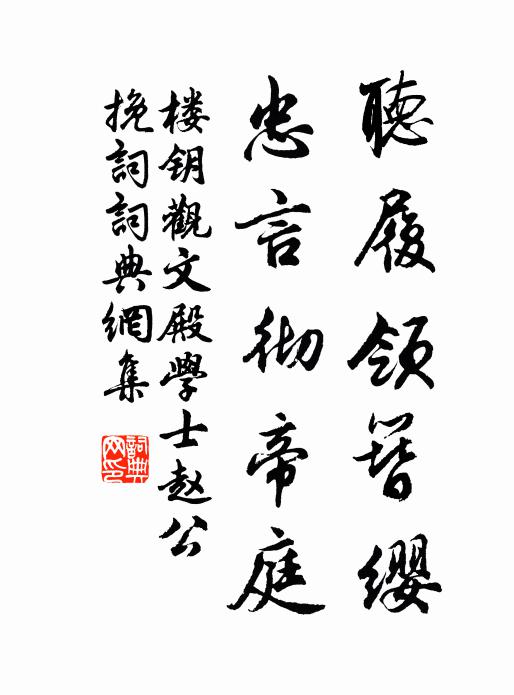 聽履領簪缨
忠言彻帝庭
楼钥觀文殿學士赵公
挽詞詞典網集
詞典网印